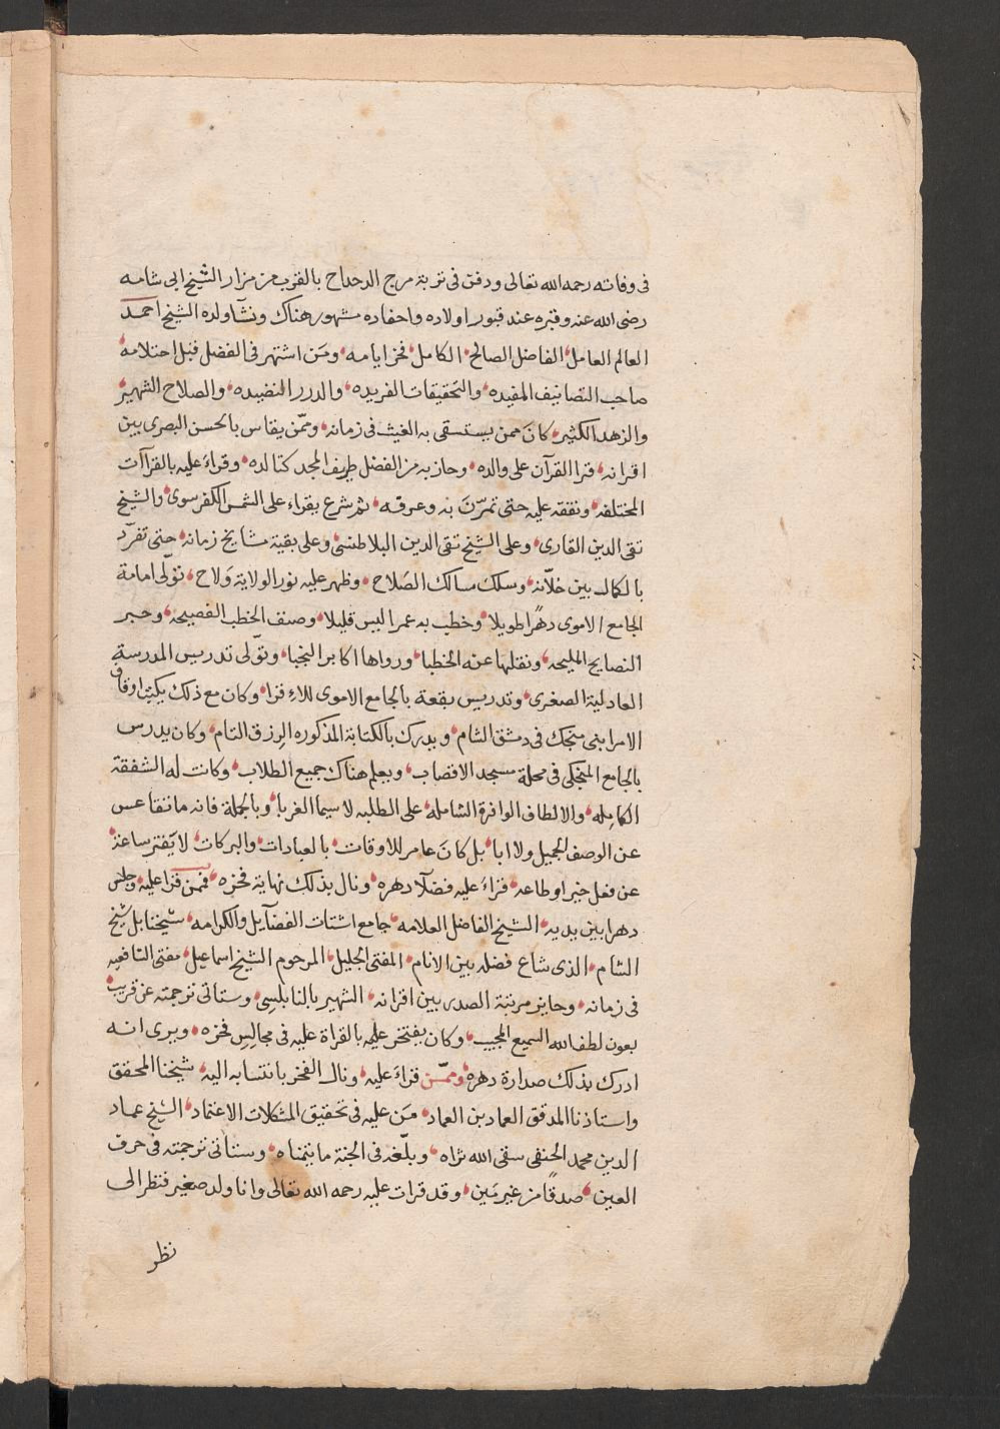 فى وفاته رحمه الله تعالى ودفن فى تربة مرج الدحداح بالقرب من مزار الشيخ ابى شامه
رضى الله عنه وقبره عند قبور اولاده واحفاده مشهور هناك ونشآ ولده الشيخ احمد
العالم العامل الفاضل الصالح الكامل فخر ايامه ومَن اشتهر فى الفضل قبل احتلامه
صاحب التصانيف المفيده والتحقيقات الفريده والدرر النضيده والصلاح الشهير
والزهد الكثير كانَ ممن يستسقى به الغيث فى زمانه وممّن يقاس بالحسن البصرى بين
اقرانه قرا القرآن على والده وحاز به من الفضل طريف المجد كتالده وقراءَ عليه بالقراآت
المختلفه وتفقه عليه حتى تمرّنَ به وعرفه ثم شرع يقراء على الشمس الكفرسوى والشيخ
تقى الدين القارى وعلى الشيخ تقى الدين البلاطنسى وعلى بقية مشايخ زمانه حتى تفرّد
بالكمال بين خلّانه وسلك مسالك الصَلاح وظهر عليه نور الولاية وَلاح توّلى امامة
الجامع الاموى دهرًا طويلا وخطب به عمرا ليس قليلا وصنف الخطب الفصيحه وحبر
النصايح المليحه ونقلها عنه الخطبا ورواها اكابر النجبا وتوّلى تدريس المدرسة
العادلية الصغرى وتدريس بقعة بالجامع الاموى للاءِقرا وكان مع ذلك يكتب اوقاف
الامرا بنى منجك فى دمشق الشام ويدرك بالكتابة المذكوره الرزق التام وكان يدرس
بالجامع المنجكى فى محلة مسجد الاقصاب ويعلم هناك جميع الطلاب وكانت له الشفقة
الكامله والالطاف الوافرة الشاملة على الطلبه لاسيما الغربا وبالجملة فانه ما تقاعس
عن الوصف الجميل ولا ابا بل كانَ عامر للاوقات بالعبادات والبركات لا يَفتر ساعة
عن فعل خير او طاعه قراءَ عليه فضلآ دهره ونال بذلك نهاية فخره فممن قرا عليه وجلس
دهرا بين يديه الشيخ الفاضل العلامه جامع اشتات الفضآيل والكرامه شيخنا بل شيخ
الشام الذى شاع فضله بين الانام المفتى الجليل المرحوم الشيخ اسماعيل مفتى الشافعيه
فى زمانه وحايز مرتبة الصدر بين اقرانه الشهير بالنابلسى وستاتى ترجمته عن قريب
بعون لطف الله السميع المجيب وكان يفتخر عليهم بالقراة عليه فى مجالس فخره ويرى انه
ادرك بذلك صدارة دهره وممّن قراءَ عليه ونال الفخر بانتسابه اليه شيخنا المحقق
واستاذنا المدقق العماد بن العماد مَن عليه فى تحقيق المشكلات الاعتماد الشيخ عماد
الدين محمد الحنفى سقى الله ثراه وبلّغه فى الجنة ما يتمناه وستاتى ترجمته فى حرف
العين صدقًا من غير مَين وقد قرات عليه رحمه الله تعالى وانا ولد صغير فنظر الى
نظر